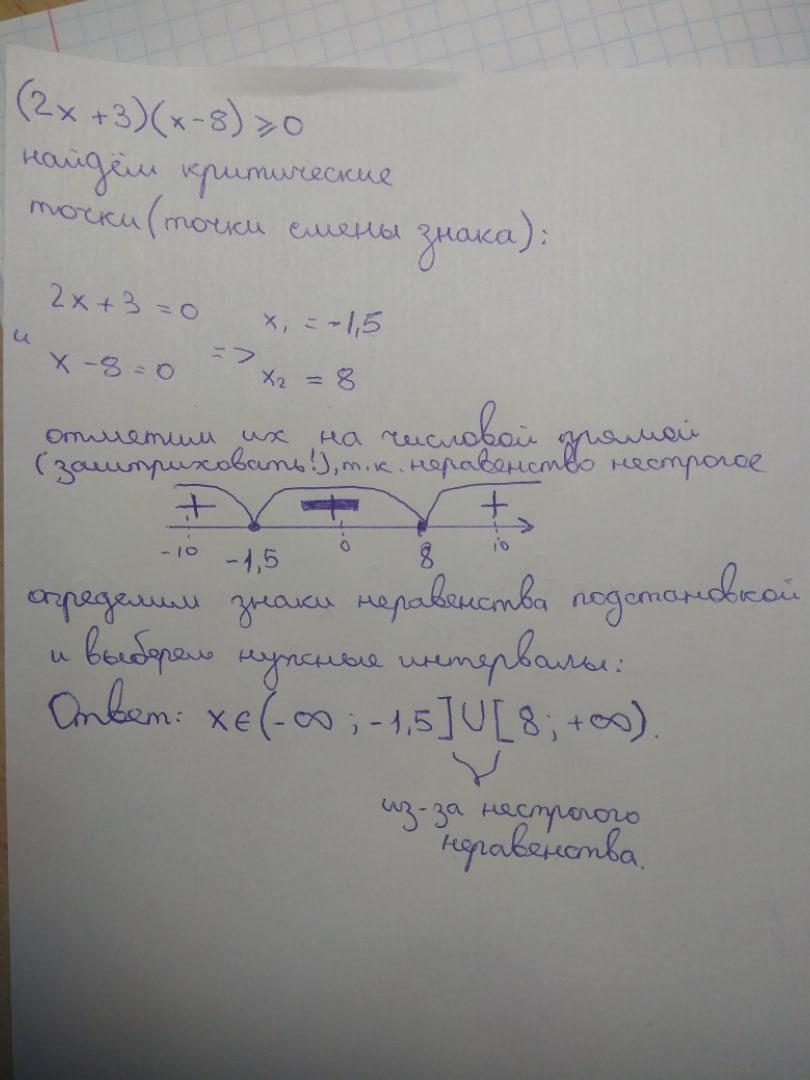 (2x+3)(x-8)⩾0
найдём критические
точки(точки смены знака):
2x+3=0 x₁ = -1,5
и
x-8=0 => x₂ = 8
отметим их на числовой прямой
(заштриховать!), т.к. неравенство нестрогое
+ − +
-10 -1,5 0 8 10
определим знаки неравенства подстановкой
и выберем нужные интервалы:
Ответ: x∈(-∞; -1,5]∪[8; +∞).
из-за нестрогого
неравенства.